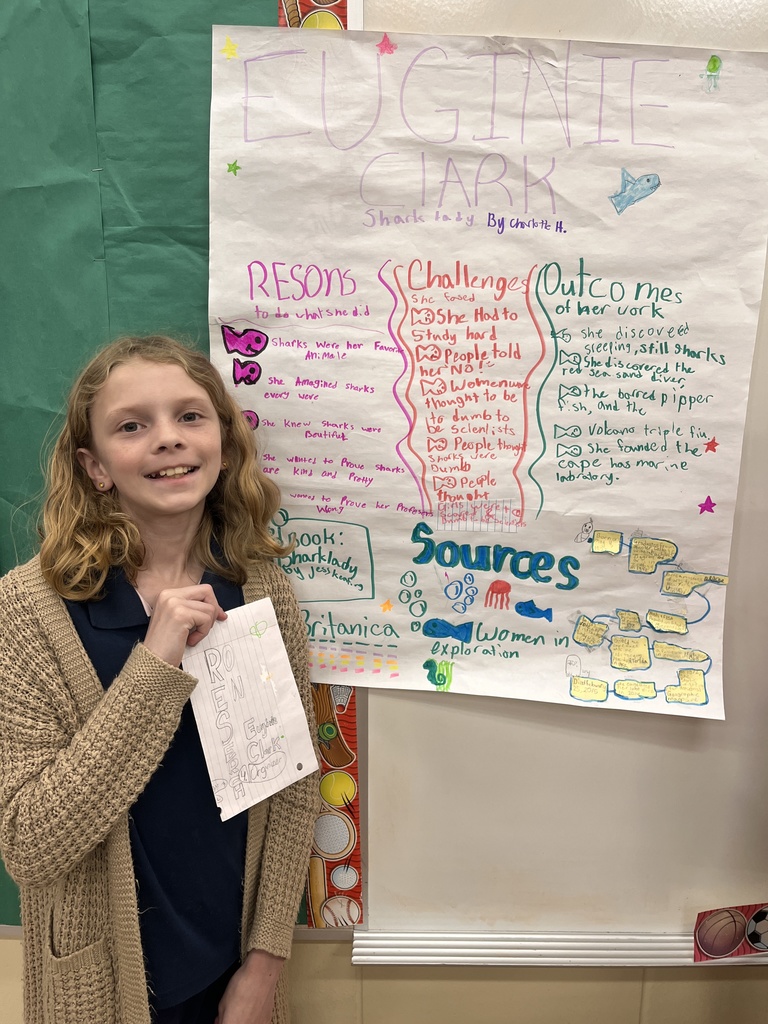 EUGINIE
ClARK
Shark lady By Charlotte H.
RESONS
to do what she did
Sharks Were her Favorite
Animale
she Amagined sharks
every were
she Knew Sharks were
Beutiful
she wanted to Prove sharks
are Kind and Pretty
wanted to Prove her Professors
Wong
Challenges
she fased
She Had to
Study hard
People told
her NO!
Women were
thought to be
to dumb to
be Scientists
People thought
Sharks were
Dumb
People
thought
Outcomes
of her work
she discoveed
sleeping, still sharks
She discovered the
red sea sand diver,
the barred pipper
fish, and the
Volcano triple fin
She founded the
cape has marine
labratory.
Book:
Sharklady
by Jess Keating
Britanica
Sources
Women in
exploration
RESEA
RON
Eugenie
Clark
Organizer